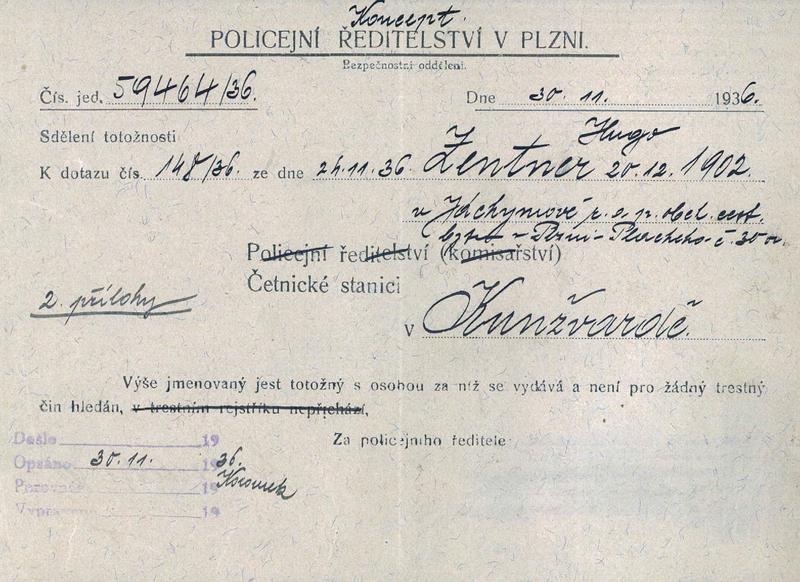 Koncept.
POLICEJNÍ ŘEDITELSTVÍ V PLZNI.
Bezpečnostní oddělení.
Čís. jed. 59464/36. Dne 30. 11. 1936.
Sdělení totožnosti Hugo
K dotazu čís. 148/36. ze dne 24.11.36. Zentner 20.12.1902.
v Jáchymově p. o. p. obch. cest.
bytem v Plzni - Plachého č. 30
Policejní ředitelství (komisařství)
Četnické stanici
2. přílohy
v Kunžvardě.
Výše jmenovaný jest totožný s osobou za niž se vydává a není pro žádný trestný
čin hledán, v trestním rejstříku nepřichází,
Došlo 19
Za policejního ředitele
Opsáno 30.11. 1936.
Porovnáno 19
Vypraveno 19